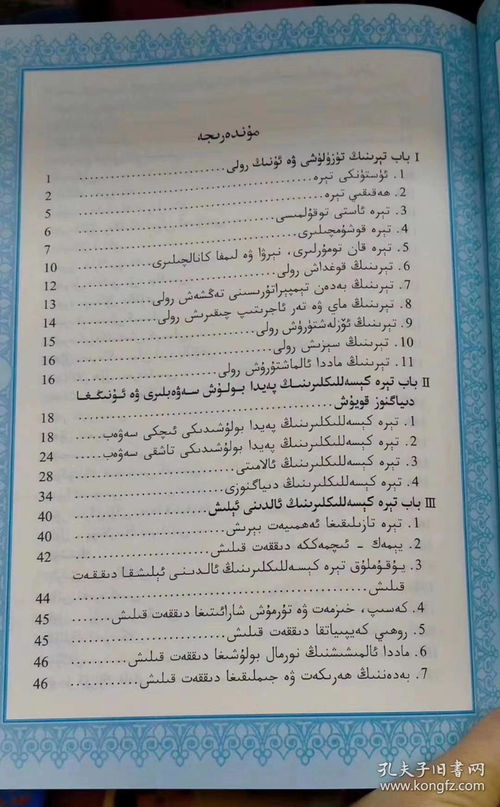 مۇندەرىجە
I باب تېرىنىڭ تۈزۈلۈشى ۋە ئۇنىڭ رولى
1. ئۈستۈنكى تېرە 1
2. ھەقىقىي تېرە 2
3. تېرە ئاستى توقۇلمىسى 5
4. تېرە قوشۇمچىلىرى 6
5. تېرە قان تومۇرلىرى، نېرۋا ۋە لىمفا كاناللىرى 7
6. تېرىنىڭ قوغداش رولى 10
7. تېرىنىڭ بەدەن تېمپېراتۇرىسىنى تەڭشەش رولى 12
8. تېرىنىڭ ماي ۋە تەر ئاجرىتىپ چىقىرىش رولى 13
9. تېرىنىڭ ئۆزلەشتۈرۈش رولى 14
10. تېرىنىڭ سېزىش رولى 15
11. تېرىنىڭ ماددا ئالماشتۇرۇش رولى 16
II باب تېرە كېسەللىكلىرىنىڭ پەيدا بولۇش سەۋەبلىرى ۋە ئۇنىڭغا
دىياگنوز قويۇش 18
1. تېرە كېسەللىكلىرىنىڭ پەيدا بولۇشىدىكى ئىچكى سەۋەب 18
2. تېرە كېسەللىكلىرىنىڭ پەيدا بولۇشىدىكى تاشقى سەۋەب 24
3. تېرە كېسەللىكلىرىنىڭ ئالامىتى 28
4. تېرە كېسەللىكلىرىنىڭ دىياگنوزى 34
III باب تېرە كېسەللىكلىرىنىڭ ئالدىنى ئېلىش 40
1. تېرە تازىلىقىغا ئەھمىيەت بېرىش 40
2. يېمەك - ئىچمەككە دىققەت قىلىش 42
3. يۇقۇملۇق تېرە كېسەللىكلىرىنىڭ ئالدىنى ئېلىشقا دىققەت
قىلىش 44
4. كەسىپ، خىزمەت ۋە تۇرمۇش شارائىتىغا دىققەت قىلىش 45
5. روھىي كەيپىياتقا دىققەت قىلىش 45
6. ماددا ئالمىشىشنىڭ نورمال بولۇشىغا دىققەت قىلىش 46
7. بەدەننىڭ ھەرىكەت ۋە جىملىقىغا دىققەت قىلىش 46
孔夫子旧书网
www.kongfz.com